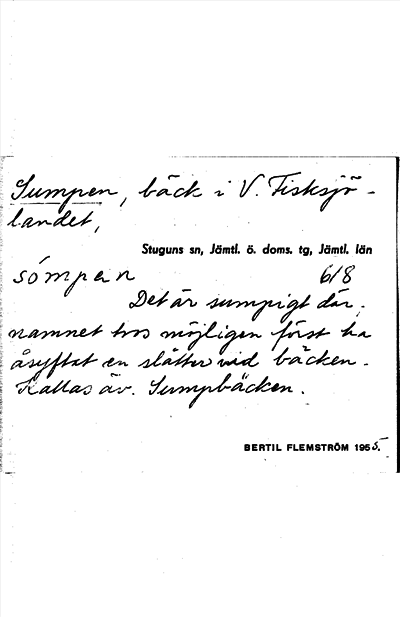 Sumpen, bäck i V. Fisksjö-
landet,
Stuguns sn, Jämtl. ö. doms. tg, Jämtl. län
sómpen 6/8
Det är sumpigt där,
namnet tros möjligen först ha
åsyftat en slåtter vid bäcken.
Kallas äv. Sumpbäcken.
BERTIL FLEMSTRÖM 1955.